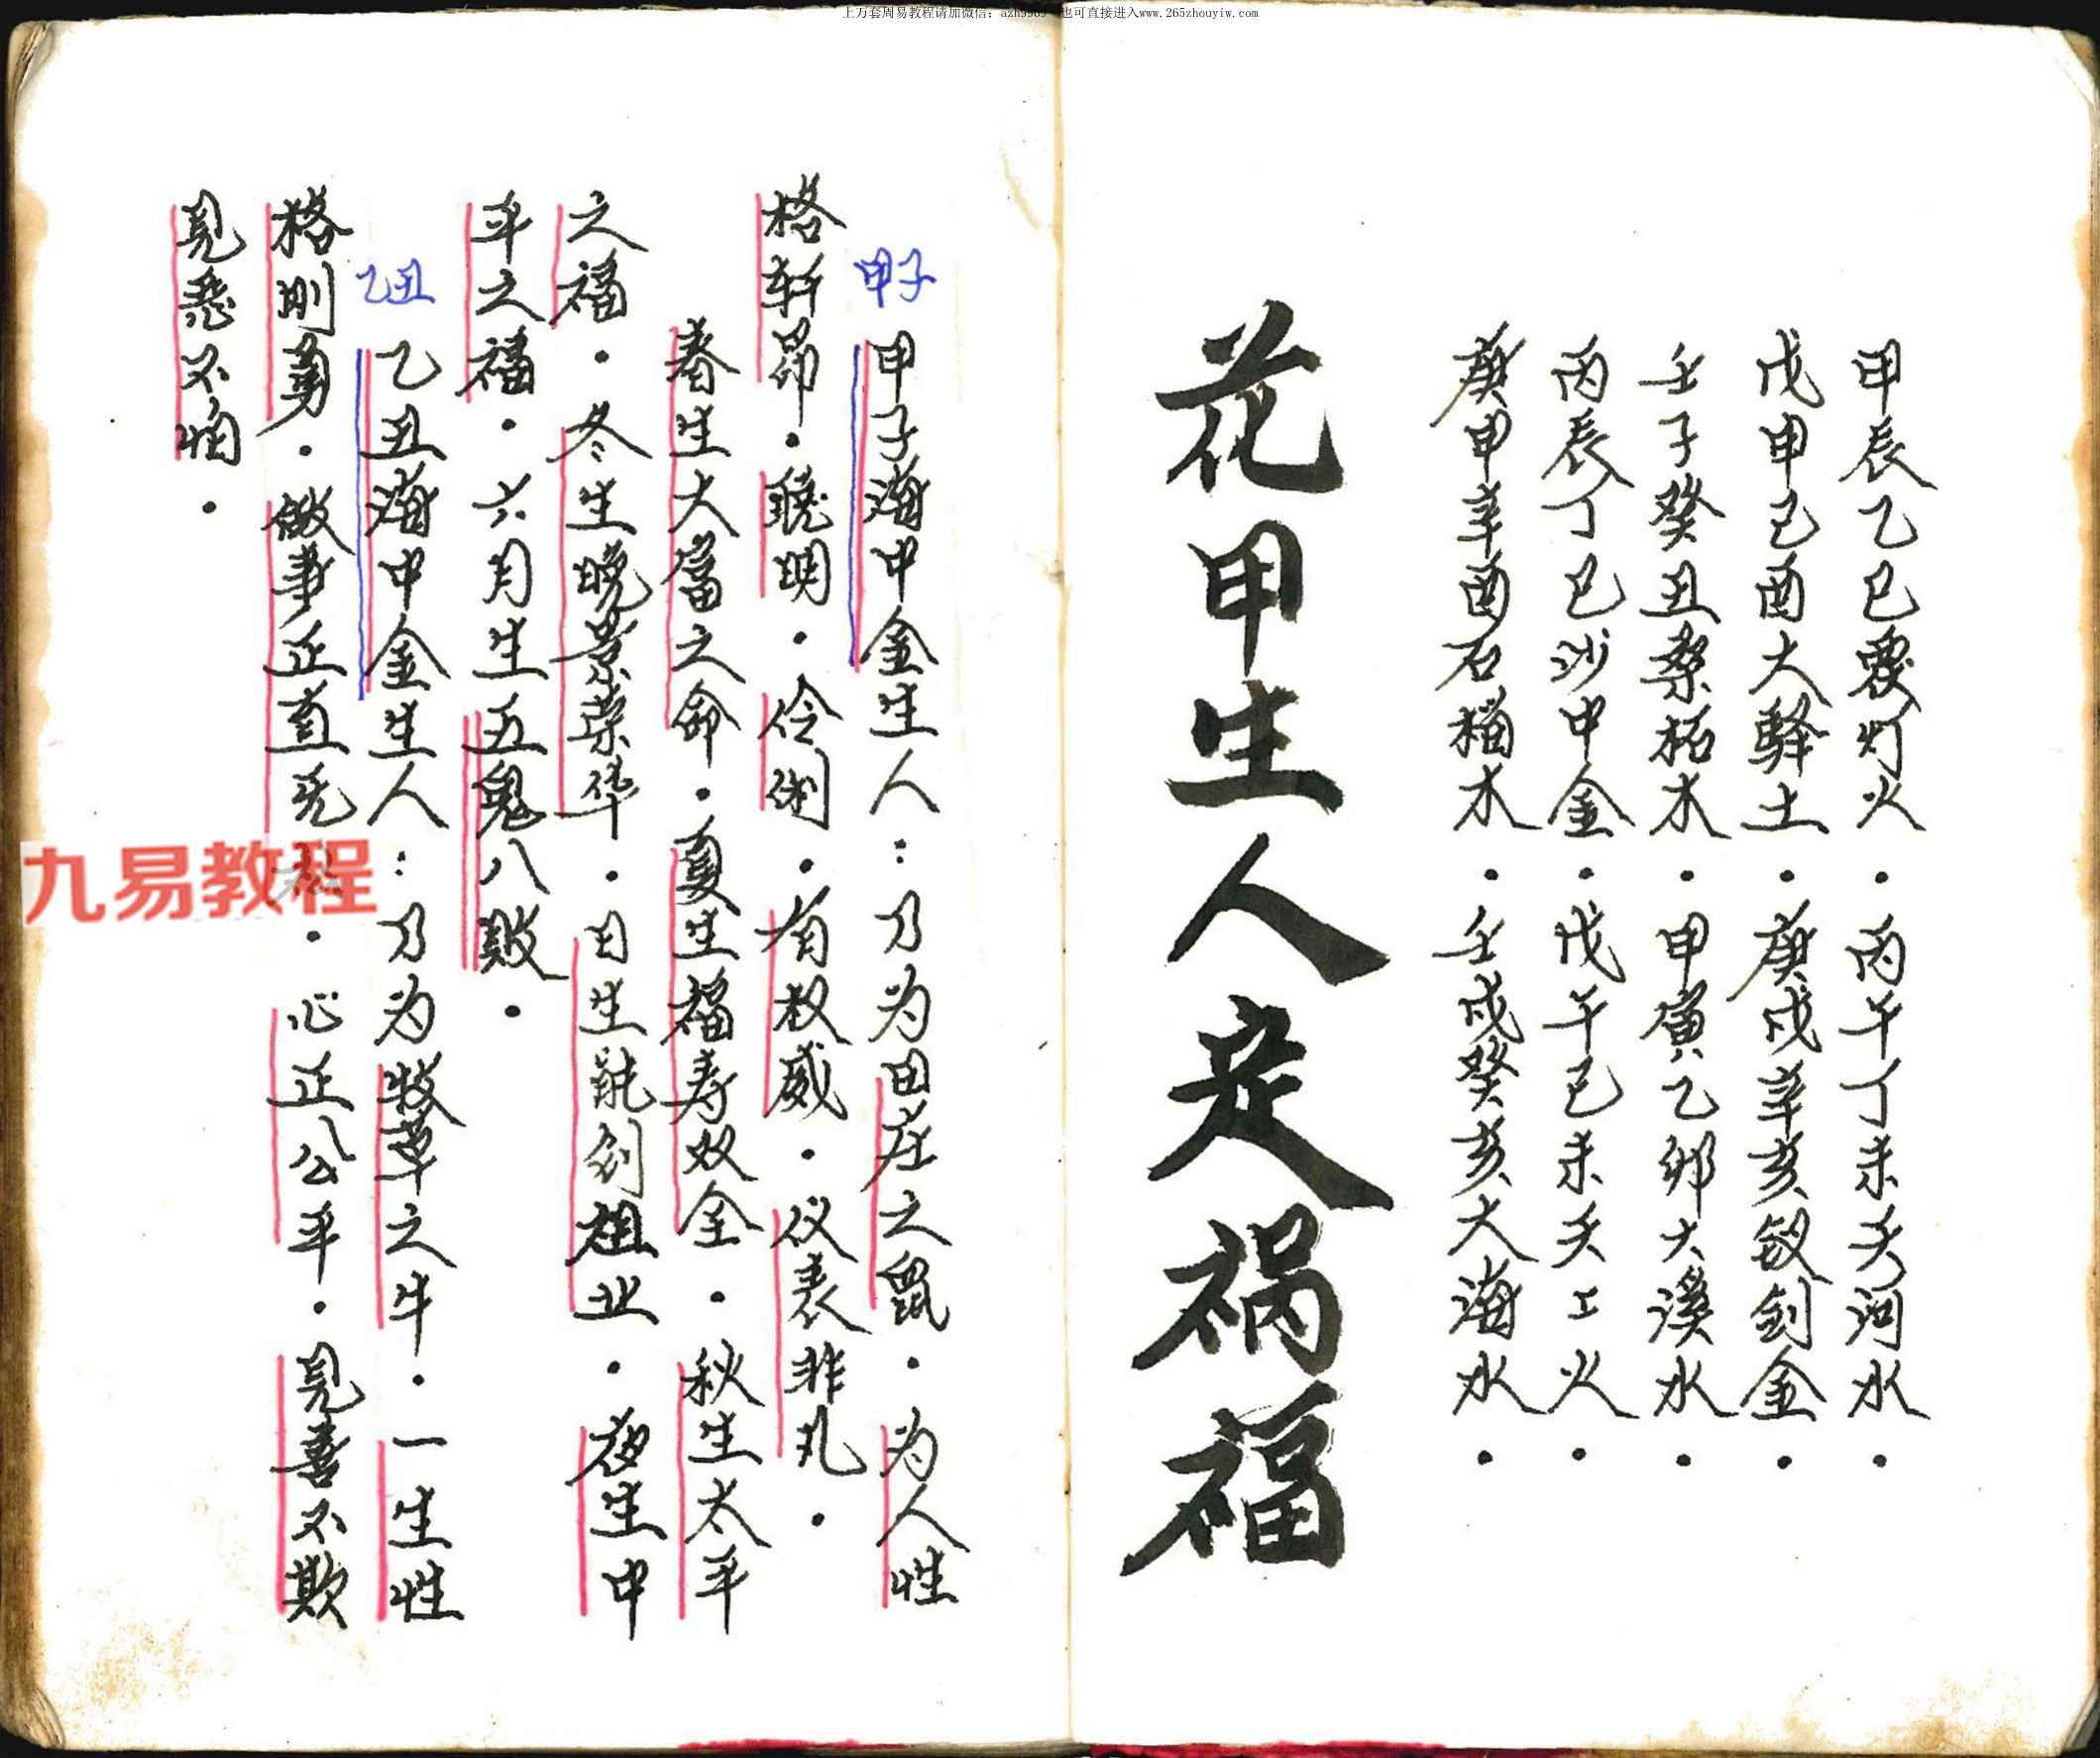 上万套周易教程请加微信：azh9989 也可直接进入www.265zhouyiw.com
甲辰乙巳覆灯火．丙午丁未天河水．
戊申己酉大驿土．庚戌辛亥钗剑金．
壬子癸丑桑柘木．甲寅乙卯大溪水．
丙辰丁巳沙中金．戊午己未天上火．
庚申辛酉石榴木．壬戌癸亥大海水．
花甲生人定祸福
甲子
甲子海中金生人：乃为田庄之鼠．为人性
格轩昂．聪明．伶俐．有权威．仪表非凡．
春生大富之命．夏生福寿双全．秋生太平
之福．冬生晚景荣华．日生能创祖业．夜生中
平之福．六月生五鬼八败．
乙丑
乙丑海中金生人：乃为牧草之牛．一生性
格刚勇．做事正直无私．心正公平．见善不欺
见恶不怕．
九易教程